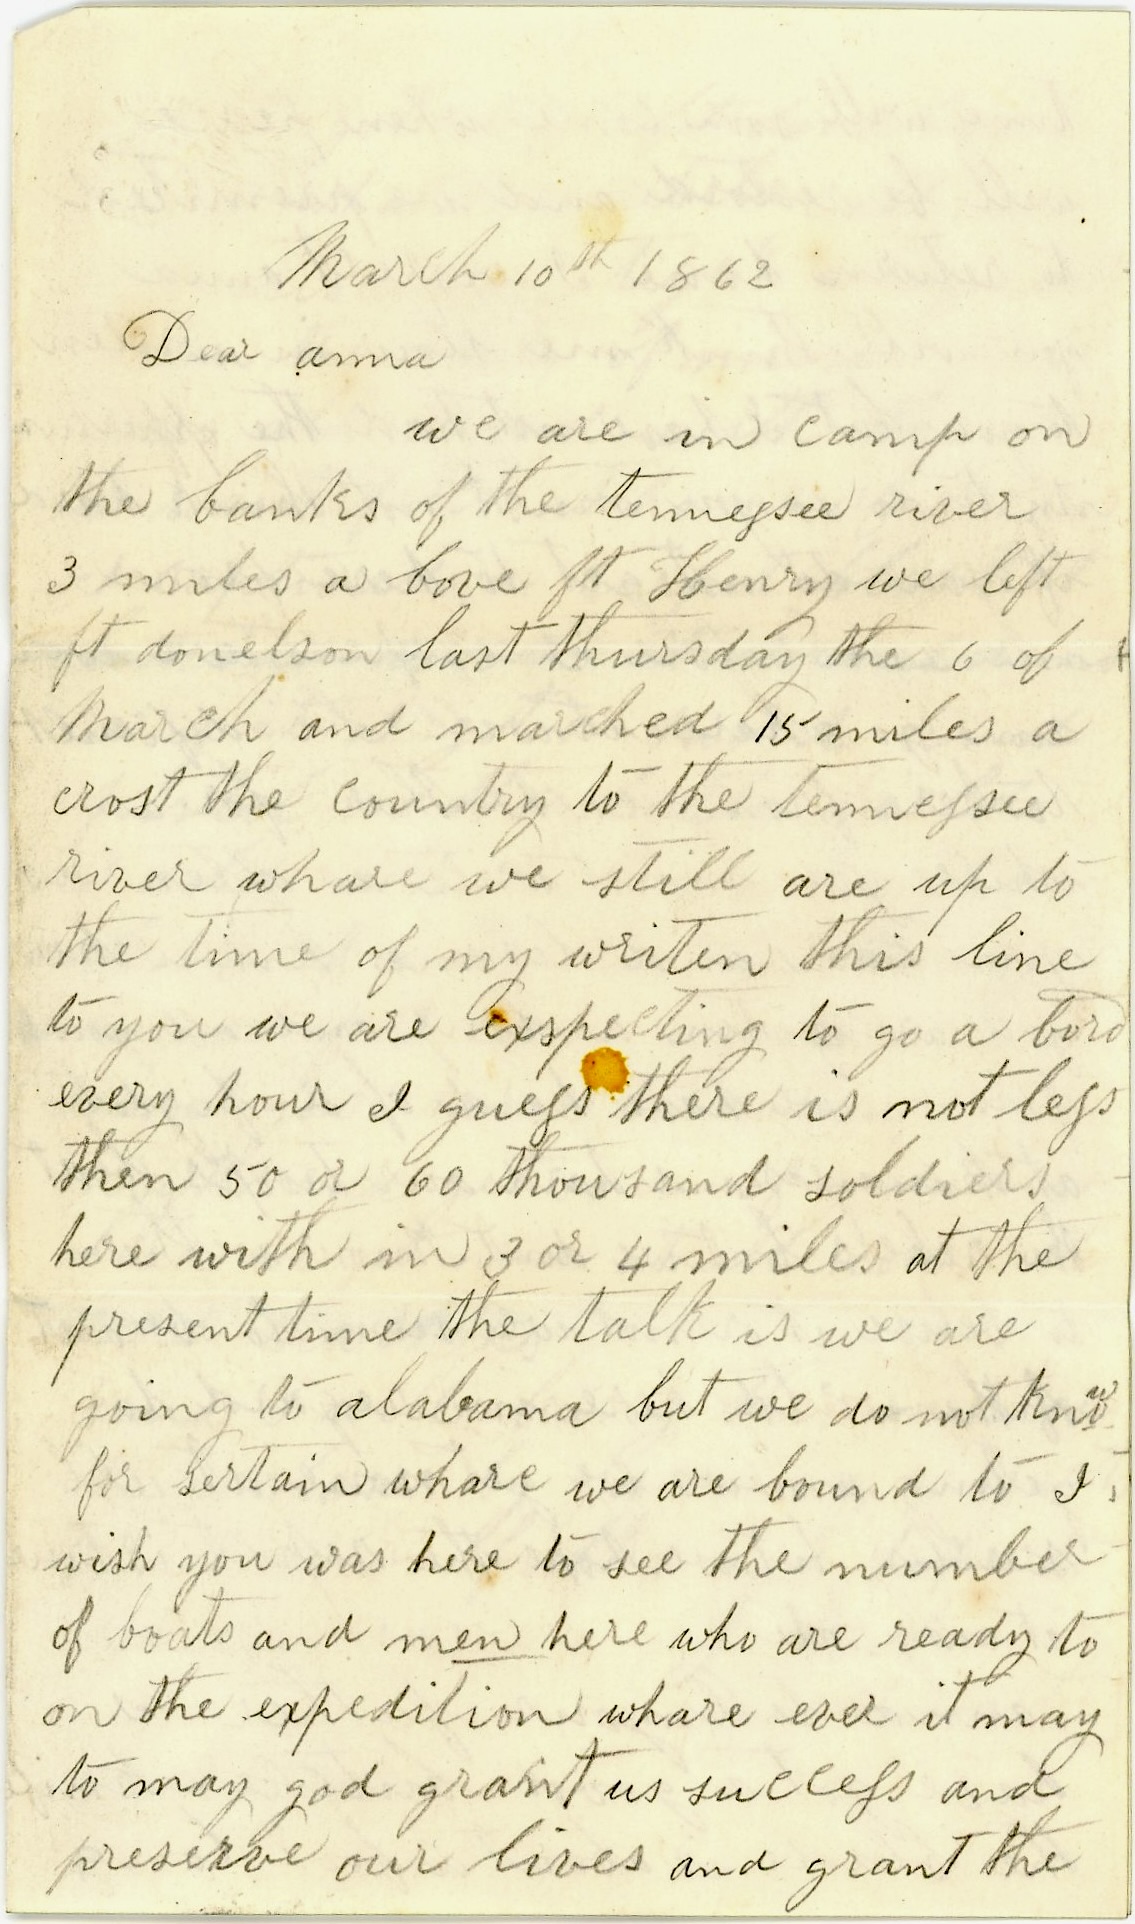 March 10th 1862
Dear anna
we are in camp on
the banks of the tennessee river
3 miles a bove ft Henry we left
ft donelson last thursday the 6 of
March and marched 15 miles a
crost the country to the tennessee
river whare we still are up to
the time of my writen this line
to you we are exspecting to go a bord
every hour I guess there is not less
then 50 or 60 thousand soldiers
here with in 3 or 4 miles at the
present time the talk is we are
going to alabama but we do not know
for sertain whare we are bound to I
wish you was here to see the number
of boats and men here who are ready to
on the expedition whare ever it may
to may god grant us success and
preserve our lives and grant the